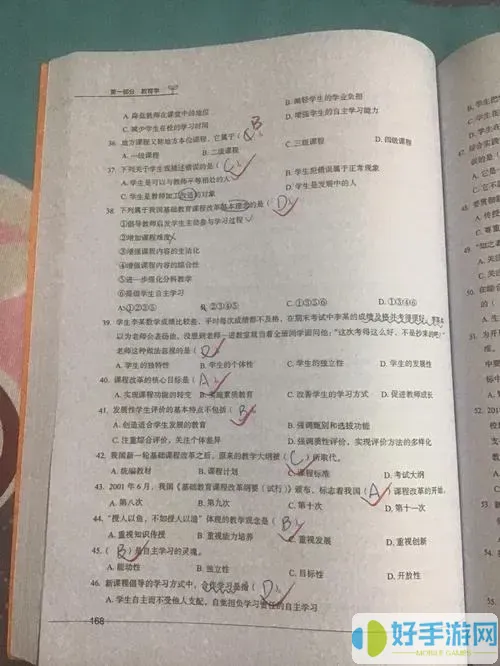 第一部分 教育学
A. 降低教师在课堂中的地位 B. 减轻学生的学业负担
C. 减少学生在校的学习时间 D. 增强学生的自主学习能力
36. 地方课程又称地方本位课程，它属于（B）。
A. 一级课程 B. 二级课程 C. 三级课程 D. 四级课程
37. 下列关于学生观描述错误的是（C）。
A. 学生是可以与教师平等相处的人 B. 学生犯错误属于正常现象
C. 学生是教师加工改造的对象 D. 学生是发展中的人
38. 下列属于我国基础教育课程改革基本理念的是（D）。
①倡导教师启发学生主动参与学习过程
②增加课程难度
③增强课程内容的生活化
④增强课程内容的综合性
⑤进一步强化分科教学
⑥提倡学生自主学习
A. ①②③⑤ B. ②③④⑤ C. ①③⑤⑥ D. ①③④⑥
39. 学生李某数学成绩比较差，平时每次成绩都不及格，在期末考试中李某的成绩及格
以为老师会表扬他，没想到老师一进教室就当着全班同学面问他：“这次考得这么好，不是抄来的吧！”
老师这种做法忽视的是（D）。
A. 学生的独特性 B. 学生的个体性 C. 学生的独立性 D. 学生的发展性
40. 课程改革的核心目标是（A）。
A. 实现课程功能的转变 B. 实施素质教育 C. 改善学生的学习方式 D. 促进教师成长
41. 发展性学生评价的基本特点不包括（B）。
A. 创造适合学生发展的教育 B. 强调甄别和选拔功能
C. 注重综合评价，关注个体差异 D. 强调质性评价，实现评价方法的多样化
42. 我国新一轮基础课程改革之后，原来的教学大纲被（C）所取代。
A. 统编教材 B. 课程计划 C. 课程标准 D. 考试大纲
43. 2001 年 6 月，我国《基础教育课程改革纲要（试行）》颁布，标志着我国（A）课程改革的开始。
A. 第八次 B. 第九次 C. 第十次 D. 第十一次
44. “授人以鱼，不如授人以渔”体现的教学观念是（B）。
A. 重视知识传授 B. 重视能力培养 C. 重视发展 D. 重视创新
45.（B）是自主学习的灵魂。
A. 能动性 B. 独立性 C. 目标性 D. 开放性
46. 新课程倡导的学习方式中，合作学习是指（D）。
A. 学生自主而不受他人支配，自觉担负学习责任的自主学习
168
好手游网
MOBILE GAMES